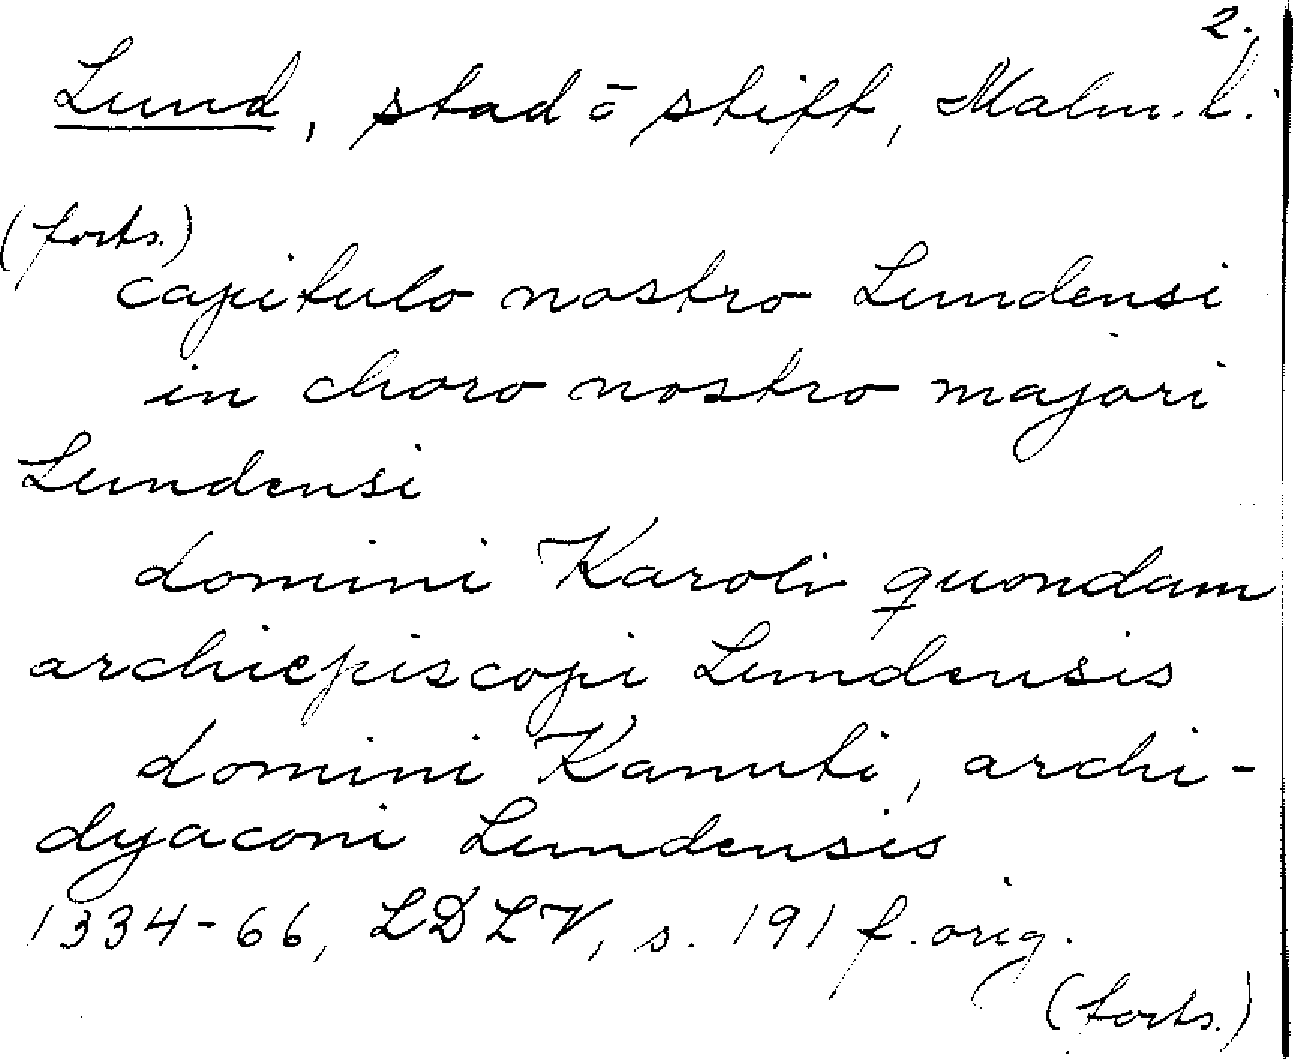 2.
Lund, stad o stift, Malm. l.
(forts.)
capitulo nostro Lundensi
in choro nostro majori
Lundensi
domini Karoli quondam
archiepiscopi Lundensis
domini Kanuti, archi-
dyaconi Lundensis
1334-66, LDLV, s. 191 f. orig.
(forts.)